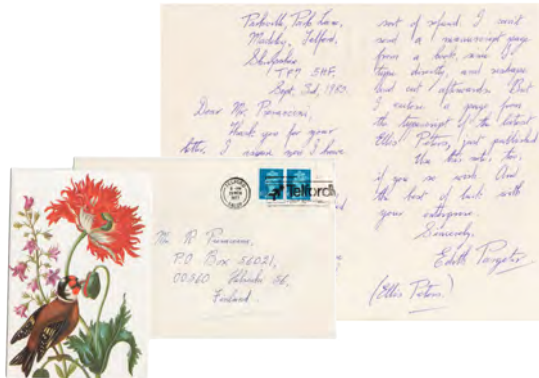 Parkville, Park Lane,
Madeley, Telford,
Shropshire
TF7 5HF.
Sept. 3rd,
Dear Mr.
Thank you for your
letter. I
now I have
sort of
I can't
send a manuscript page
from a book, since I
type directly, and reshape
and cut afterwards. But
I enclose a page from
the typescript of the latest
Ellis Peters, just published
Use this note, too,
if you so wish. And
the best of luck with
your enterprise.
Sincerely,
Edith Pargeter
(Ellis Peters)
Telford
Mr. R
P.O. Box 56021,
00560 Helsinki 56,
Finland